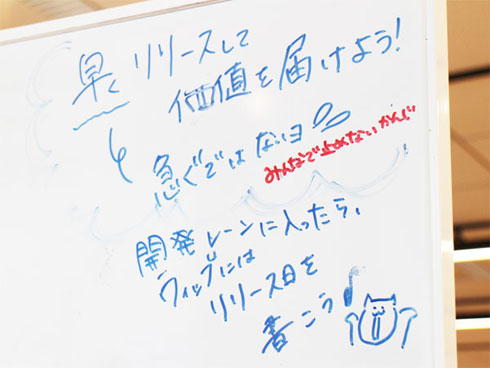 早くリリースして
価値を届けよう!
急ぐではないヨ
みんなで止めないかんじ
開発レーンに入ったら、
ウィップには
リリース日を
書こう♪